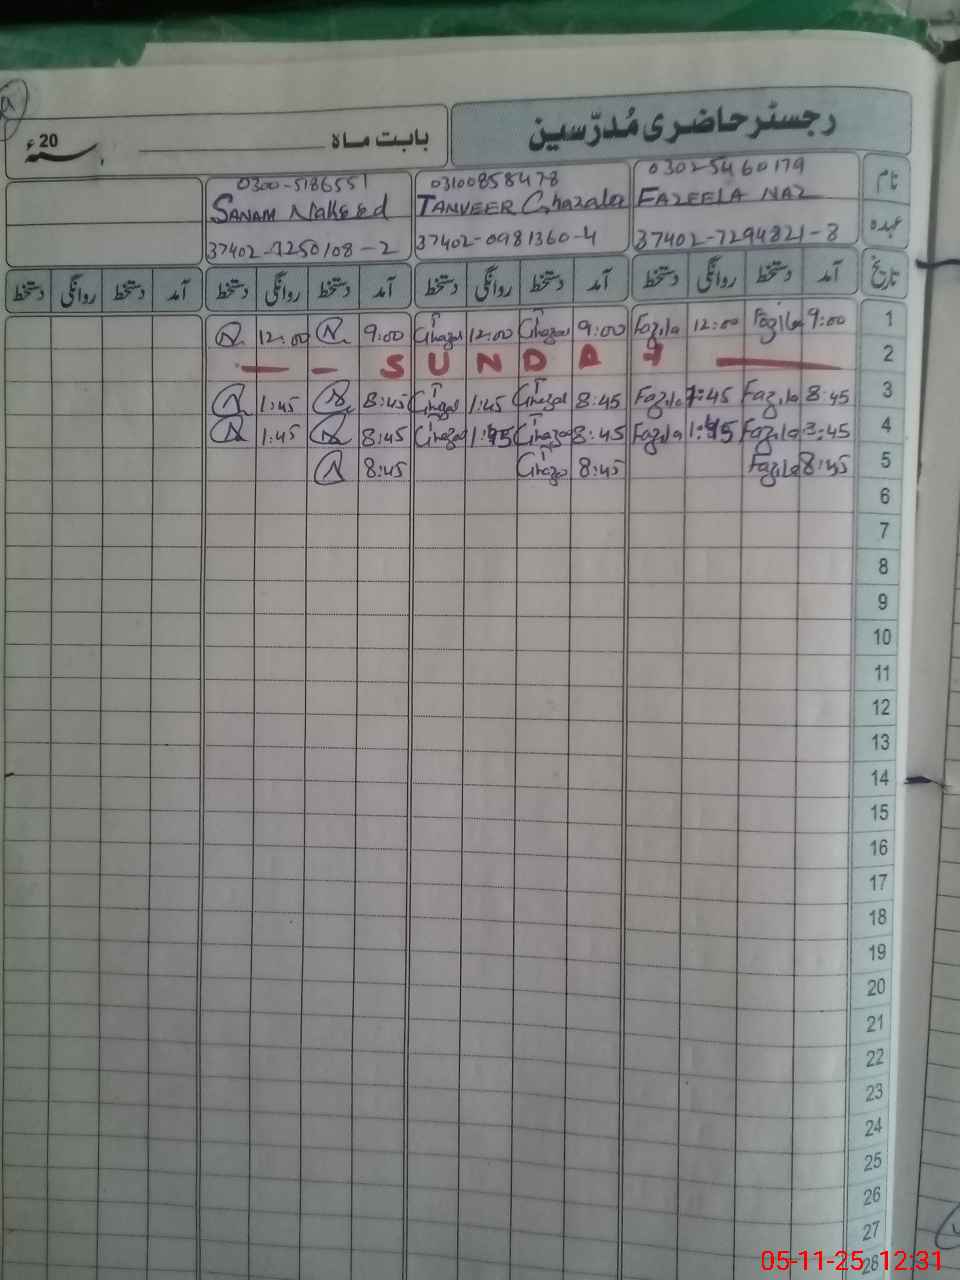 رجسٹر حاضری مُدرّسین
بابت ماہ ____________ 20ء
نام 0302-5460179 03100858478 0300-5186551
FAZEELA NAZ TANVEER Ghazala SANAM NaHEEd
عہدہ 37402-7294821-8 37402-0981360-4 37402-7250108-2
تاریخ آمد دستخط روانگی دستخط آمد دستخط روانگی دستخط آمد دستخط روانگی دستخط آمد دستخط روانگی دستخط
1 9:00 Fazila 12:00 Fazila 9:00 Ghazal 12:00 Ghazal 9:00 12:00
2 SUNDAY
3 8:45 Fazila 1:45 Fazila 8:45 Ghazal 1:45 Ghazal 8:45 1:45
4 8:45 Fazila 1:45 Fazila 8:45 Ghazal 1:45 Ghazal 8:45 1:45
5 8:45 Fazila 8:45 Ghazal 8:45
6
7
8
9
10
11
12
13
14
15
16
17
18
19
20
21
22
23
24
25
26
27
28
05-11-25 12:31